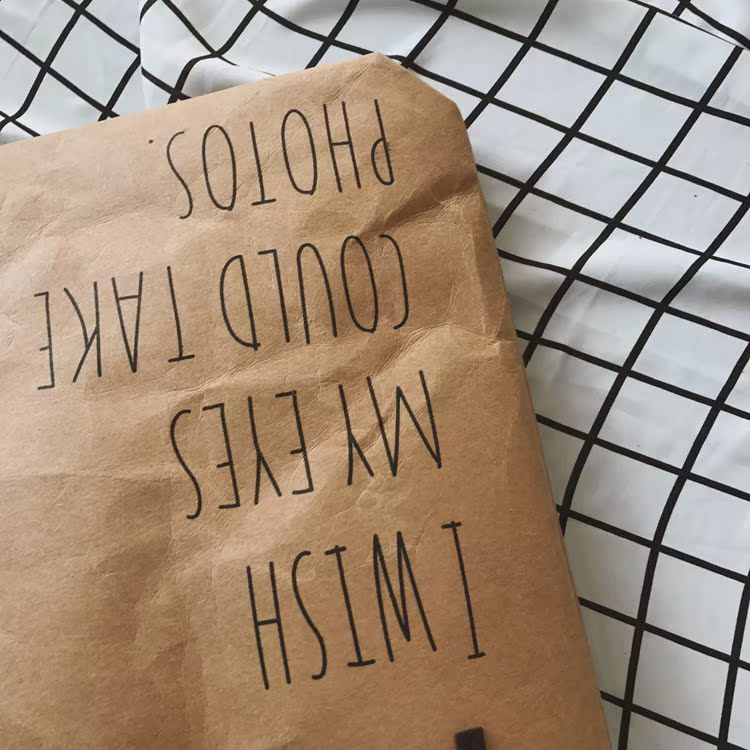 I WISH
MY EYES
COULD TAKE
PHOTOS.